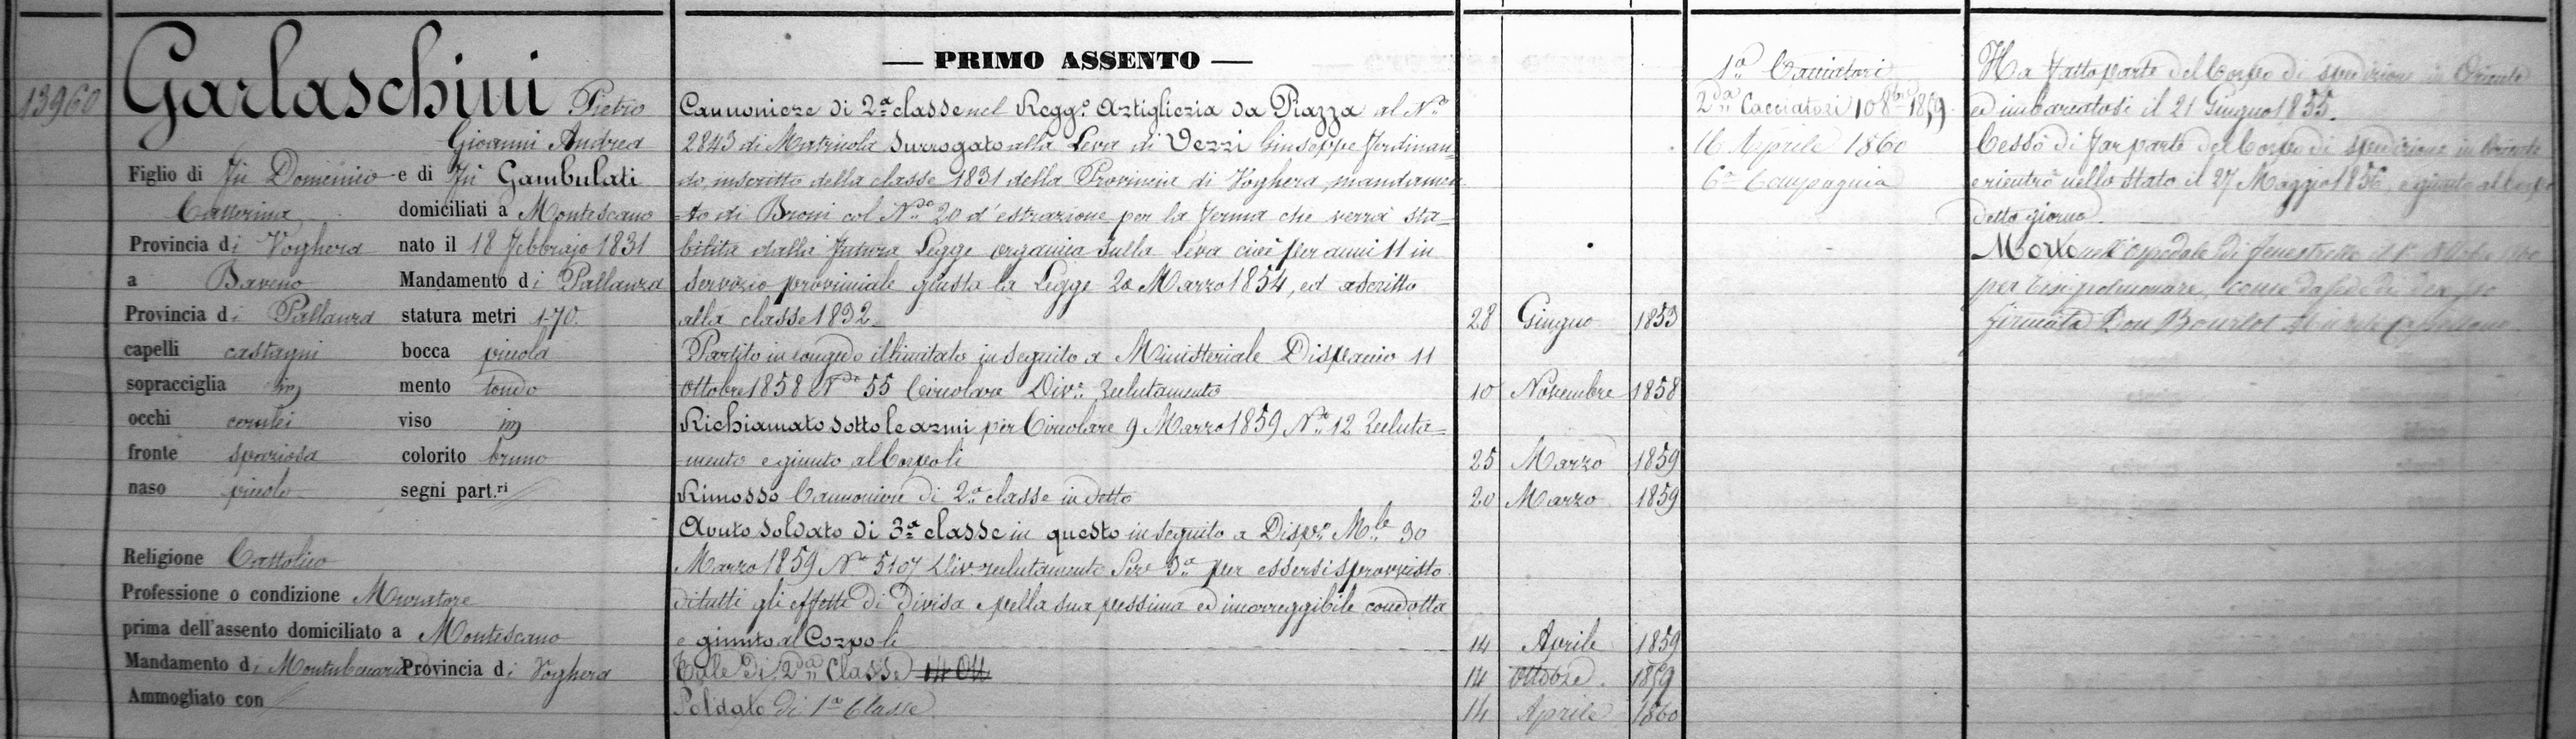 13960
Garlaschini Pietro
Giovanni Andrea
Figlio di fu Domenico e di fu Gambulati
Catterina domiciliati a Montescano
Provincia di Voghera nato il 18 febbrajo 1831
a Baveno Mandamento di Pallanza
Provincia di Pallanza statura metri 1.70.
capelli castagni bocca piccola
sopracciglia id mento tondo
occhi cerulei viso id
fronte spaziosa colorito bruno
naso piccolo segni part.ri
Religione Cattolica
Professione o condizione Muratore
prima dell'assento domiciliato a Montescano
Mandamento di Provincia di Voghera
Ammogliato con
— PRIMO ASSENTO —
Cannoniere di 2a classe nel Regg.o Artiglieria da Piazza al No
2843 di Matricola Surrogato alla Leva di Vezzi Giuseppe Ferdinan-
do inscritto della classe 1831 della Provincia di Voghera mandamen
-to di Broni col No 20 d'estrazione per la ferma che verrà sta-
bilita dalla futura Legge organica sulla Leva cioè per anni 11 in
servizio provinciale giusta la Legge 20 Marzo 1854, ed ascritto
alla classe 1832. 28 Giugno 1853
Partito in congedo illimitato in seguito a Ministeriale Dispaccio 11
Ottobre 1858 No 55 Circolare Div.e reclutamento 10 Novembre 1858
Richiamato sotto le armi per Circolare 9 Marzo 1859 No 12 Recluta=
-mento e giunto al Corpo li 25 Marzo 1859
Rimosso Cannoniere di 2a classe in detto 20 Marzo 1859
Avuto soldato di 3a classe in questo in seguito a Disp.o M.le 30
Marzo 1859 No 5107 Div.e reclutamento Sez.e 3a per essersi sprovvisto
di tutti gli effetti di divisa e pella sua pessima ed incorreggibile condotta
e giunto al Corpo li 14 Aprile 1859
Tale di 2da Classe 14 Ott 14 Ottobre 1859
Soldato di 1a Classe 14 Aprile 1860
1o Cacciatori
2da Cacciatori 10 8bre 1859.
16 Aprile 1860
6a Compagnia
Ha fatto parte del Corpo di spedizione in Oriente
ed imbarcatosi il 21 Giugno 1855.
Cessò di far parte del Corpo di spedizione in Oriente
e rientrò nello Stato il 27 Maggio 1856, e giunto al Corpo
detto giorno.
Morto nell'ospedale di Fenestrelle il
per tisi polmonare, come da fede di
firmata Don Bourlot